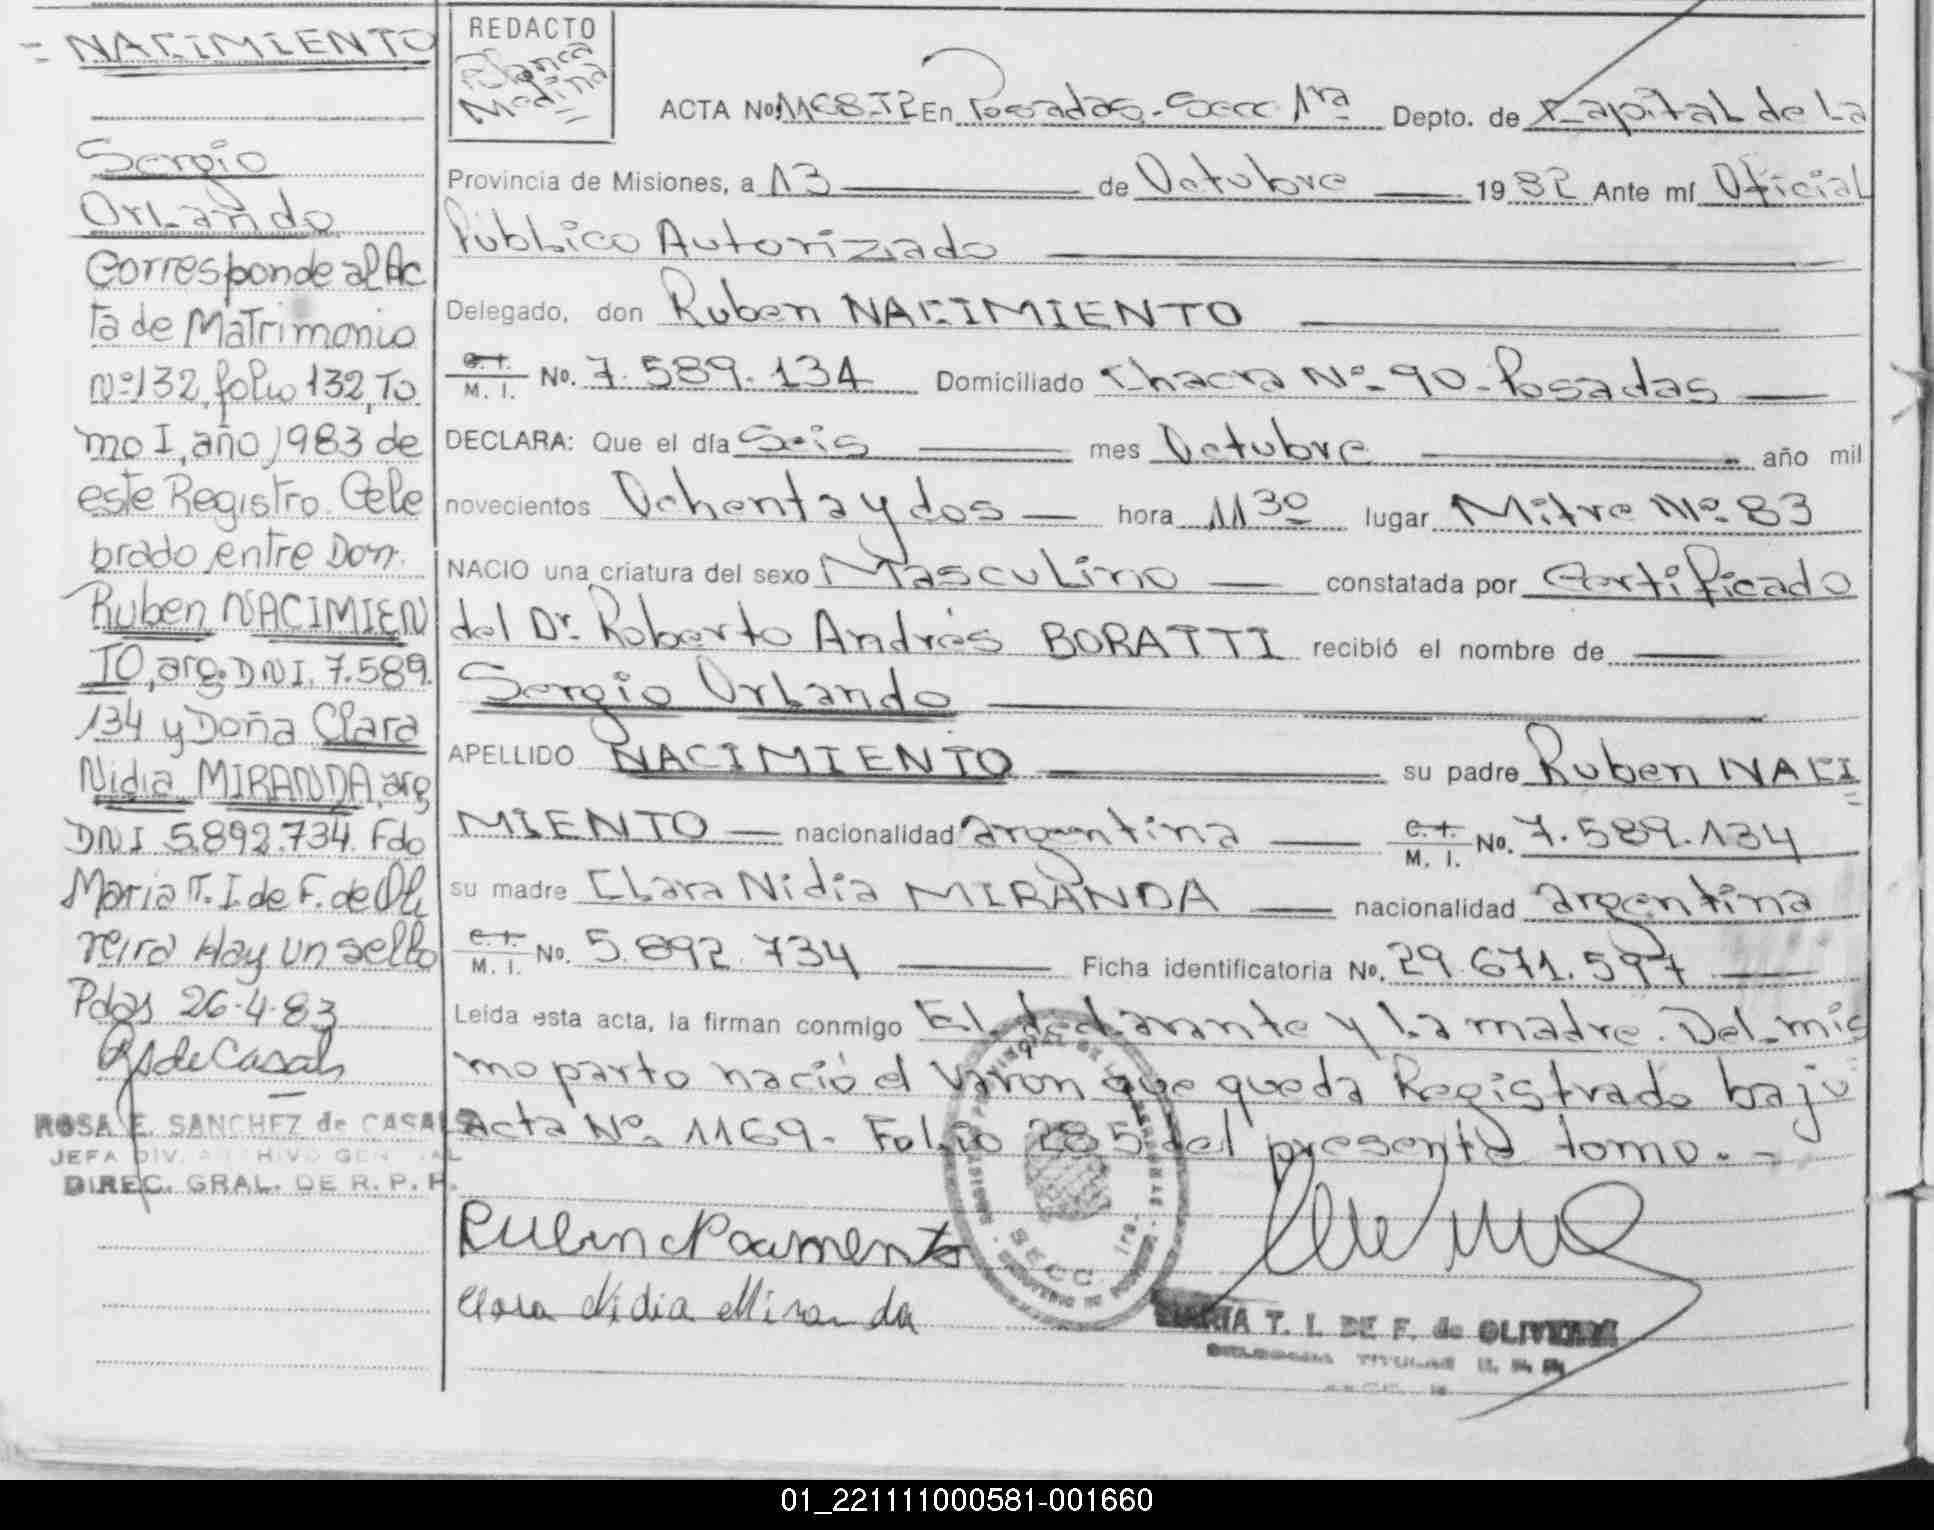 = NACIMIENTO
Sergio
Orlando
Corresponde al Ac
ta de Matrimonio
Nº 132, folio 132, To
mo I, año 1983 de
este Registro. Cele
brado entre Don.
Ruben NACIMIEN
TO, arg. DNI. 7.589.
134 y Doña Clara
Nidia MIRANDA, arg
DNI 5.892.734. Fdo
Maria T. I. de F. de Oli
veira Hay un sello
Pdas 26-4-83
RSdeCasals
ROSA E. SANCHEZ de CASALS
JEFA DIV. ARCHIVO GENERAL
DIREC. GRAL. DE R. P. P.
REDACTO
Blanca
Medina
ACTA No. 1168-T2 En Posadas-Secc 1ra Depto. de Capital de La
Provincia de Misiones, a 13 de Octubre 1982 Ante mí Oficial
Público Autorizado
Delegado, don Ruben NACIMIENTO
C. I. M. I. No. 7.589.134 Domiciliado Chacra Nº-90-Posadas
DECLARA: Que el día Seis mes Octubre año mil
novecientos Ochenta y dos hora 1130 lugar Mitre Nº-83
NACIO una criatura del sexo Masculino constatada por Certificado
del Dr. Roberto Andrés BORATTI recibió el nombre de
Sergio Orlando
APELLIDO NACIMIENTO su padre Ruben NACI
MIENTO nacionalidad argentina C. I. M. I. No. 7.589.134
su madre Clara Nidia MIRANDA nacionalidad argentina
C. I. M. I. No. 5.892.734 Ficha identificatoria No. 29.671.597
Leída esta acta, la firman conmigo El declarante y la madre. Del mis
mo parto nació el varon que queda Registrado bajo
Acta Nº. 1169. Folio 285 del presente tomo.-
Ruben Nacimento
Clara Nidia Miranda
SECC. 1ra.
MARIA T. I. DE F. de OLIVEIRA
DELEGADA TITULAR
01_221111000581-001660